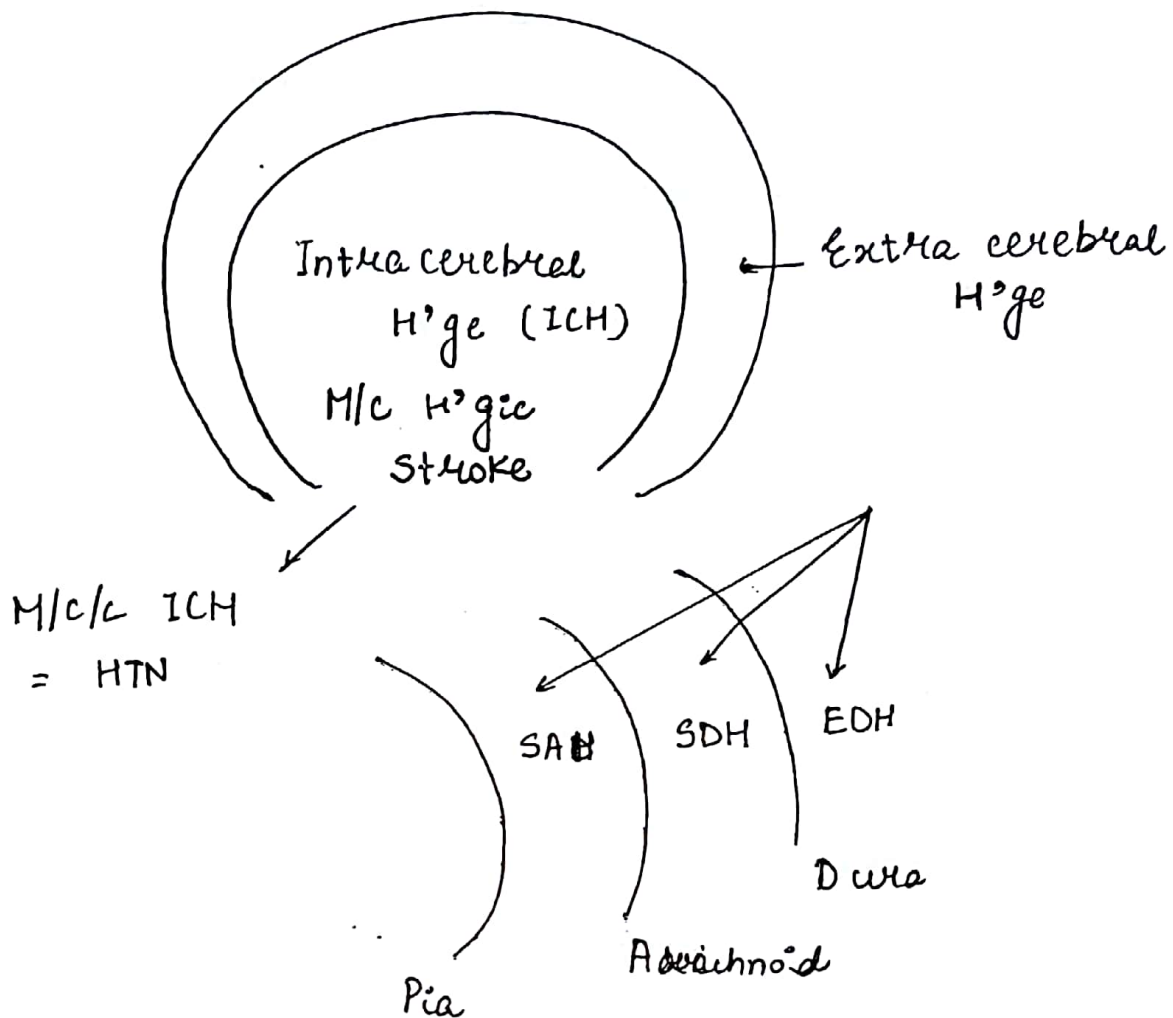 Intra cerebral
H'ge (ICH)
M/c H'gic
Stroke
Extra cerebral
H'ge
M/c/c ICH
= HTN
SAH
SDH
EDH
Dura
Arachnoid
Pia